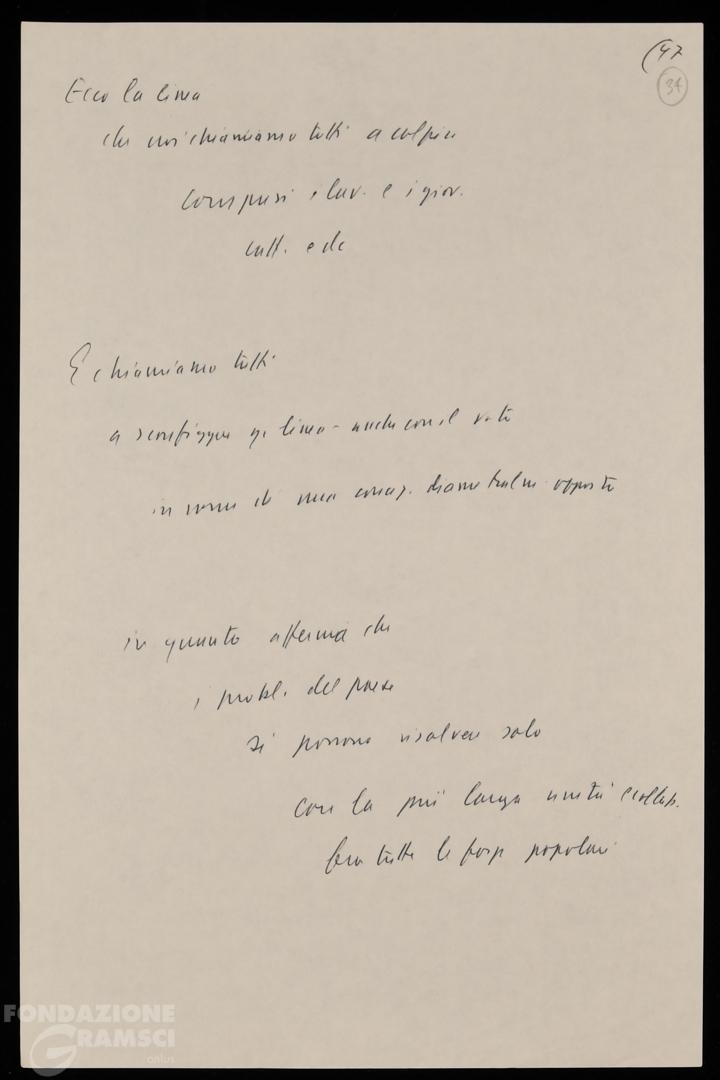 (47
34
Ecco la linea
che noi chiamiamo tutti a colpire
compresi i lav. e i giov.
catt. e dc
E chiamiamo tutti
a sconfiggere qs linea - anche con il voto
in nome di una concez. diametralm. opposta
in quanto afferma che
i probl. del paese
si possono risolvere solo
con la più larga unità e collab.
fra tutte le forze popolari
FONDAZIONE
GRAMSCI
onlus